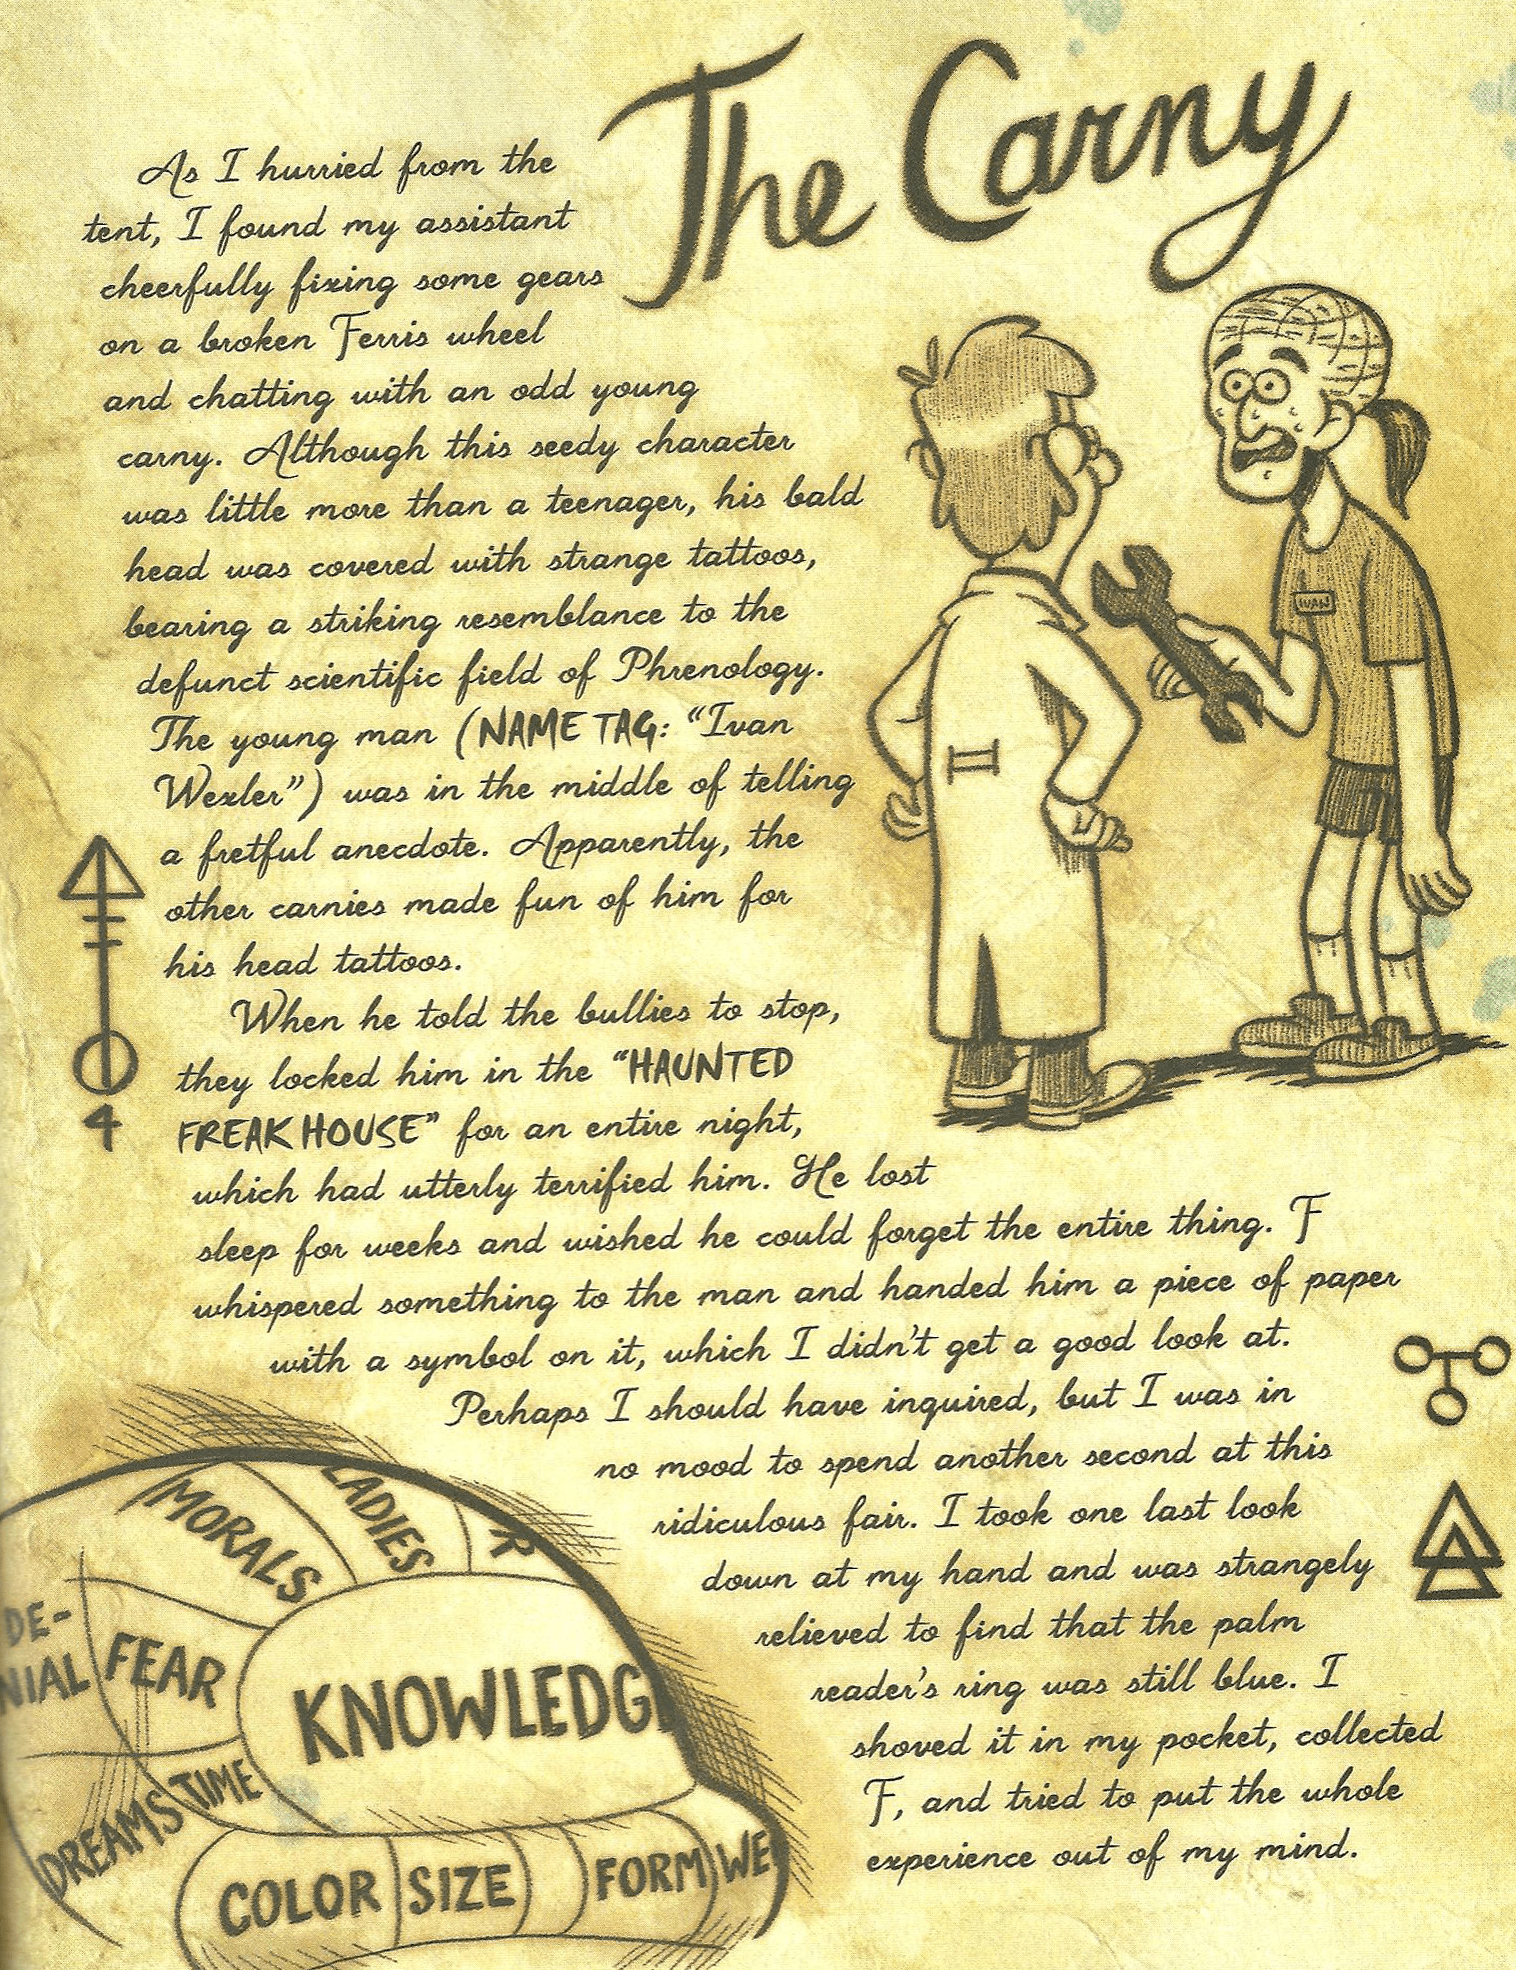 The Carny
As I hurried from the
tent, I found my assistant
cheerfully fixing some gears
on a broken Ferris wheel
and chatting with an odd young
carny. Although this seedy character
was little more than a teenager, his bald
head was covered with strange tattoos,
bearing a striking resemblance to the
defunct scientific field of Phrenology.
The young man (NAME TAG: "Ivan
Wexler") was in the middle of telling
a fretful anecdote. Apparently, the
other carnies made fun of him for
his head tattoos.
When he told the bullies to stop,
they locked him in the "HAUNTED
FREAK HOUSE" for an entire night,
which had utterly terrified him. He lost
sleep for weeks and wished he could forget the entire thing. F
whispered something to the man and handed him a piece of paper
with a symbol on it, which I didn't get a good look at.
Perhaps I should have inquired, but I was in
no mood to spend another second at this
ridiculous fair. I took one last look
down at my hand and was strangely
relieved to find that the palm
reader's ring was still blue. I
shoved it in my pocket, collected
F, and tried to put the whole
experience out of my mind.
IVAN
II
4
MORALS
LADIES
R
DE-
NIAL
FEAR
KNOWLEDGE
DREAMS
TIME
COLOR
SIZE
FORM
WE